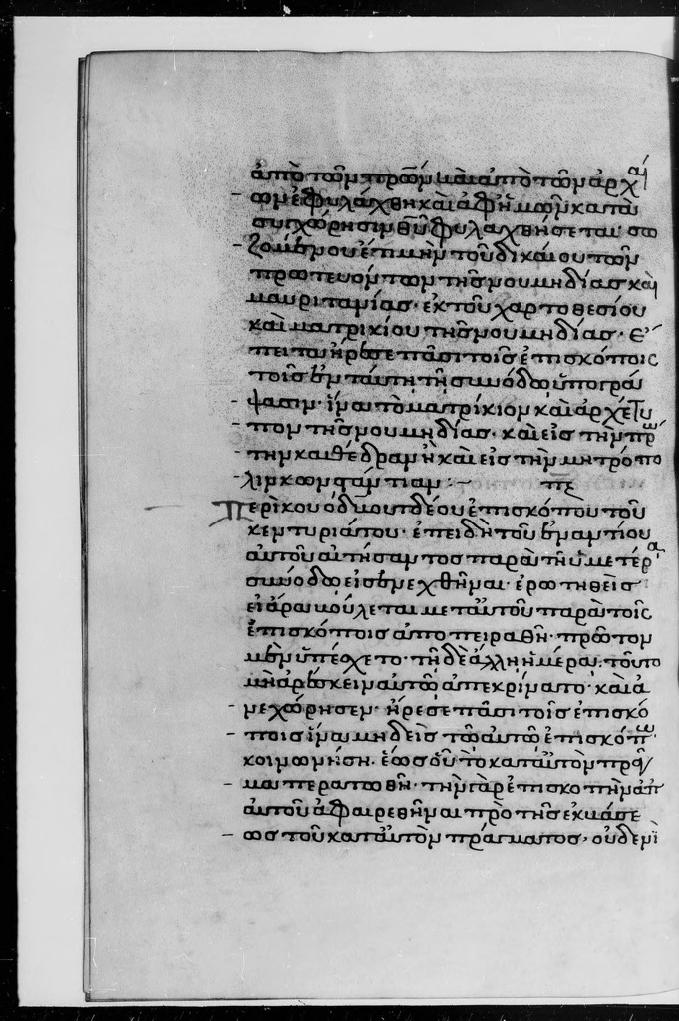 ἀπὸ τῶν πρῶν καὶ ἀπὸ τῶν ἀρχαί
ων ἐφυλάχθη καὶ ἀφ' ἡμῶν κατὰ
συγχώρησιν θυ φυλαχθήσεται· σω
ζομένου ἔτι μὴν τοῦ δικαίου τῶν
πρωτευόντων τῆς νουμηδίας καὶ
μαυριτανίας· ἐκ τοῦ χαρτοθεσίου
καὶ ματρικίου τῆς νουμηδίας· ἔ
πειτα ἤρεσε πᾶσι τοῖς ἐπισκόποις
τοῖς ἐν ταύτῃ τῇ συνόδῳ ὑπογρά
ψασιν· ἵνα τὸ ματρίκιον καὶ ἀρχέτυ
πον τῆς νουμηδίας· καὶ εἰς τὴν πρώ
την καθέδραν ἢ καὶ εἰς τὴν μητρόπο
λιν κωνσταντίαν :– πζ
Περὶ κουόδκουτδέου ἐπισκόπου τοῦ
κεντυριάτου· ἐπειδὴ τοῦ ἐναντίου
αὐτοῦ αἰτήσαντος παρὰ τῇ ὑμετέρα
συνόδῳ εἰσενεχθῆναι· ἐρωτηθεὶς
εἰ ἄρα βούλεται μετ' αὐτοῦ παρὰ τοῖς
ἐπισκόποις ἀποπειραθῆν· πρῶτον
μὲν ὑπέσχετο· τῇ δὲ ἄλλῃ ἡμέρα· τοῦτο
μὴ ἀρέσκειν αὐτῶ ἀπεκρίνατο· καὶ ἀ
νεχώρησεν· ἤρεσε πᾶσι τοῖς ἐπισκό
ποις ἵνα μηδεὶς τῶ αὐτῶ ἐπισκόπω
κοινωνήση· ἕως οὗ τὸ κατ' αὐτὸν πρᾶγ
μα περατωθῆ· τὴν γὰρ ἐπισκοπὴν ἀπ'
αὐτοῦ ἀφαιρεθῆναι πρὸ τῆς ἐκβάσε
ως τοῦ κατ' αὐτὸν πράγματος, οὐδενὶ